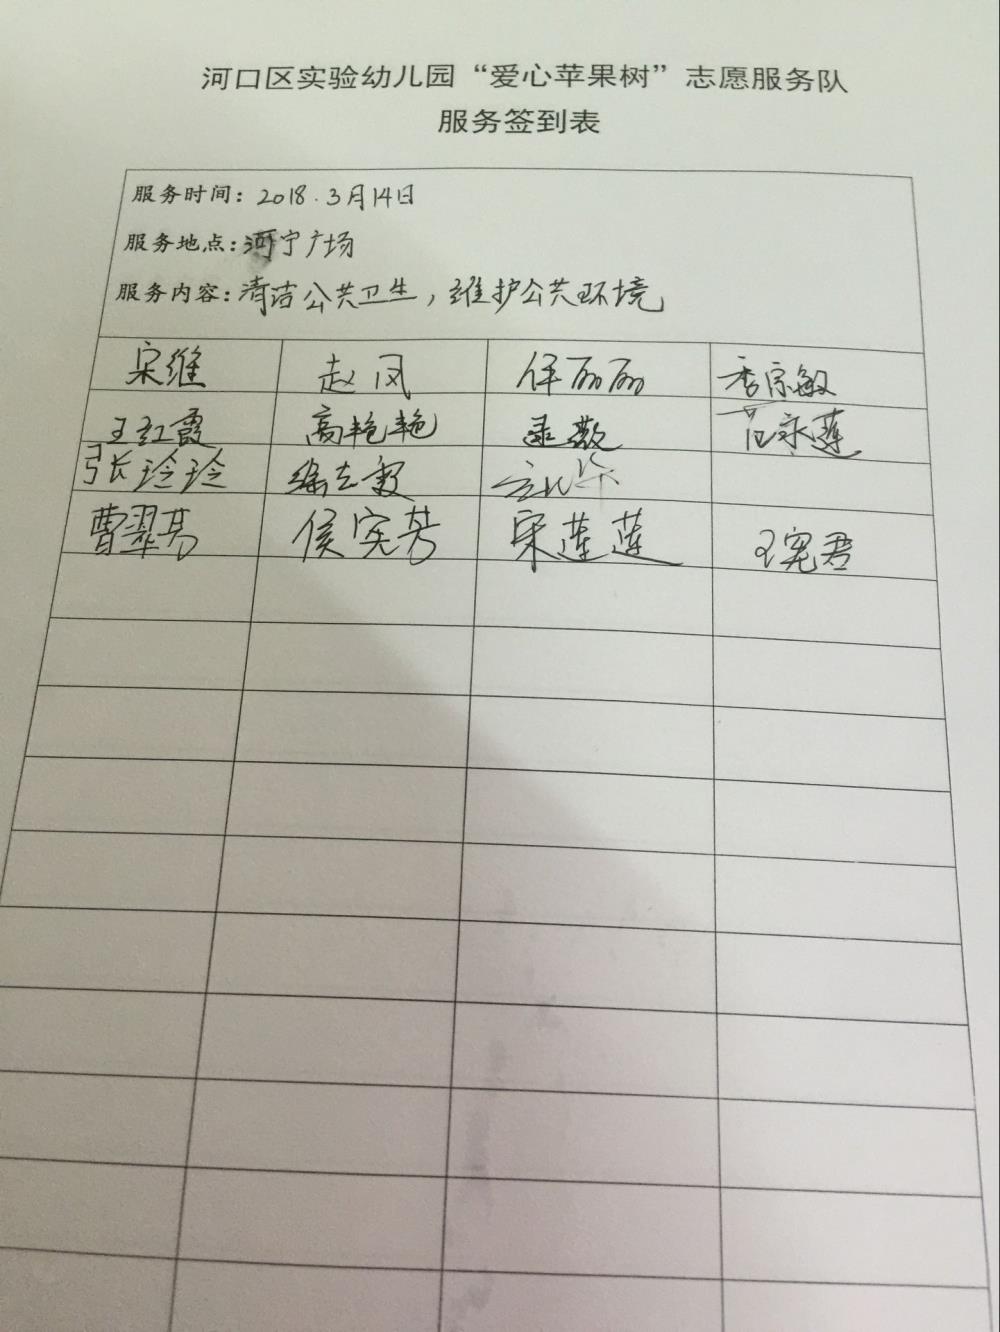 河口区实验幼儿园“爱心苹果树”志愿服务队
服务签到表
服务时间：2018.3月14日
服务地点：河宁广场
服务内容：清洁公共卫生，维护公共环境
宋维 赵凤 任丽丽 季宗敏
王红霞 高艳艳 范永莲
张玲玲 徐志毅
曹翠芳 侯宪芳 宋莲莲 王宪君